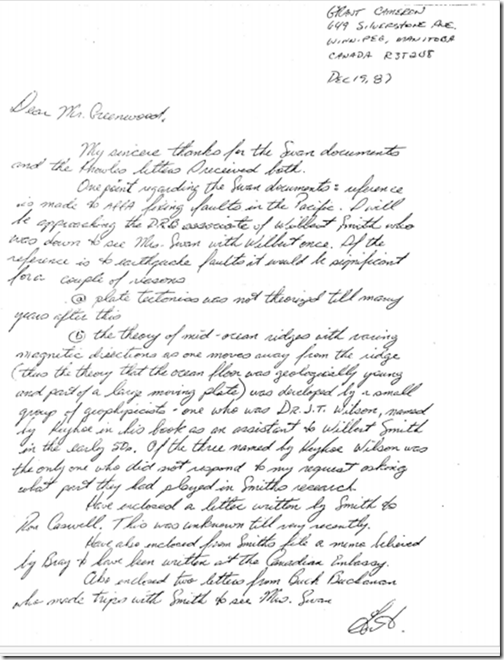 GRANT CAMERON
649 SILVERSTONE AVE
WINNIPEG, MANITOBA
CANADA R3T2V8
DEC 19, 87
Dear Mr. Greenwood,
My sincere thanks for the Swan documents
and the Knowles letters I received both.
One point regarding the Swan documents: reference
is made to AFFA fixing faults in the Pacific. I will
be approaching the DRB associate of Wilbert Smith who
was down to see Mrs. Swan with Wilbert once. If the
reference is to earthquake faults it would be significant
for a couple of reasons
(a) plate tectonics was not theorized till many
years after this
(b) the theory of mid-ocean ridges with varing
magnetic directions as one moves away from the ridge
(thus the theory that the ocean floor was geologically young
and part of a large moving plate) was developed by a small
group of geophysicists - one who was DR. J.T. Wilson, named
by Keyhoe in his book as an assistant to Wilbert Smith
in the early 50s. Of the three named by Keyhoe Wilson was
the only one who did not respond to my request asking
what part they had played in Smiths research.
Have enclosed a letter written by Smith to
Ron Caswell. This was unknown till very recently.
Have also enclosed from Smiths file a memo believed
by Bray to have been written at the Canadian Embassy.
Also enclosed two letters from Buck Buchanan
who made trips with Smith to see Mrs. Swan